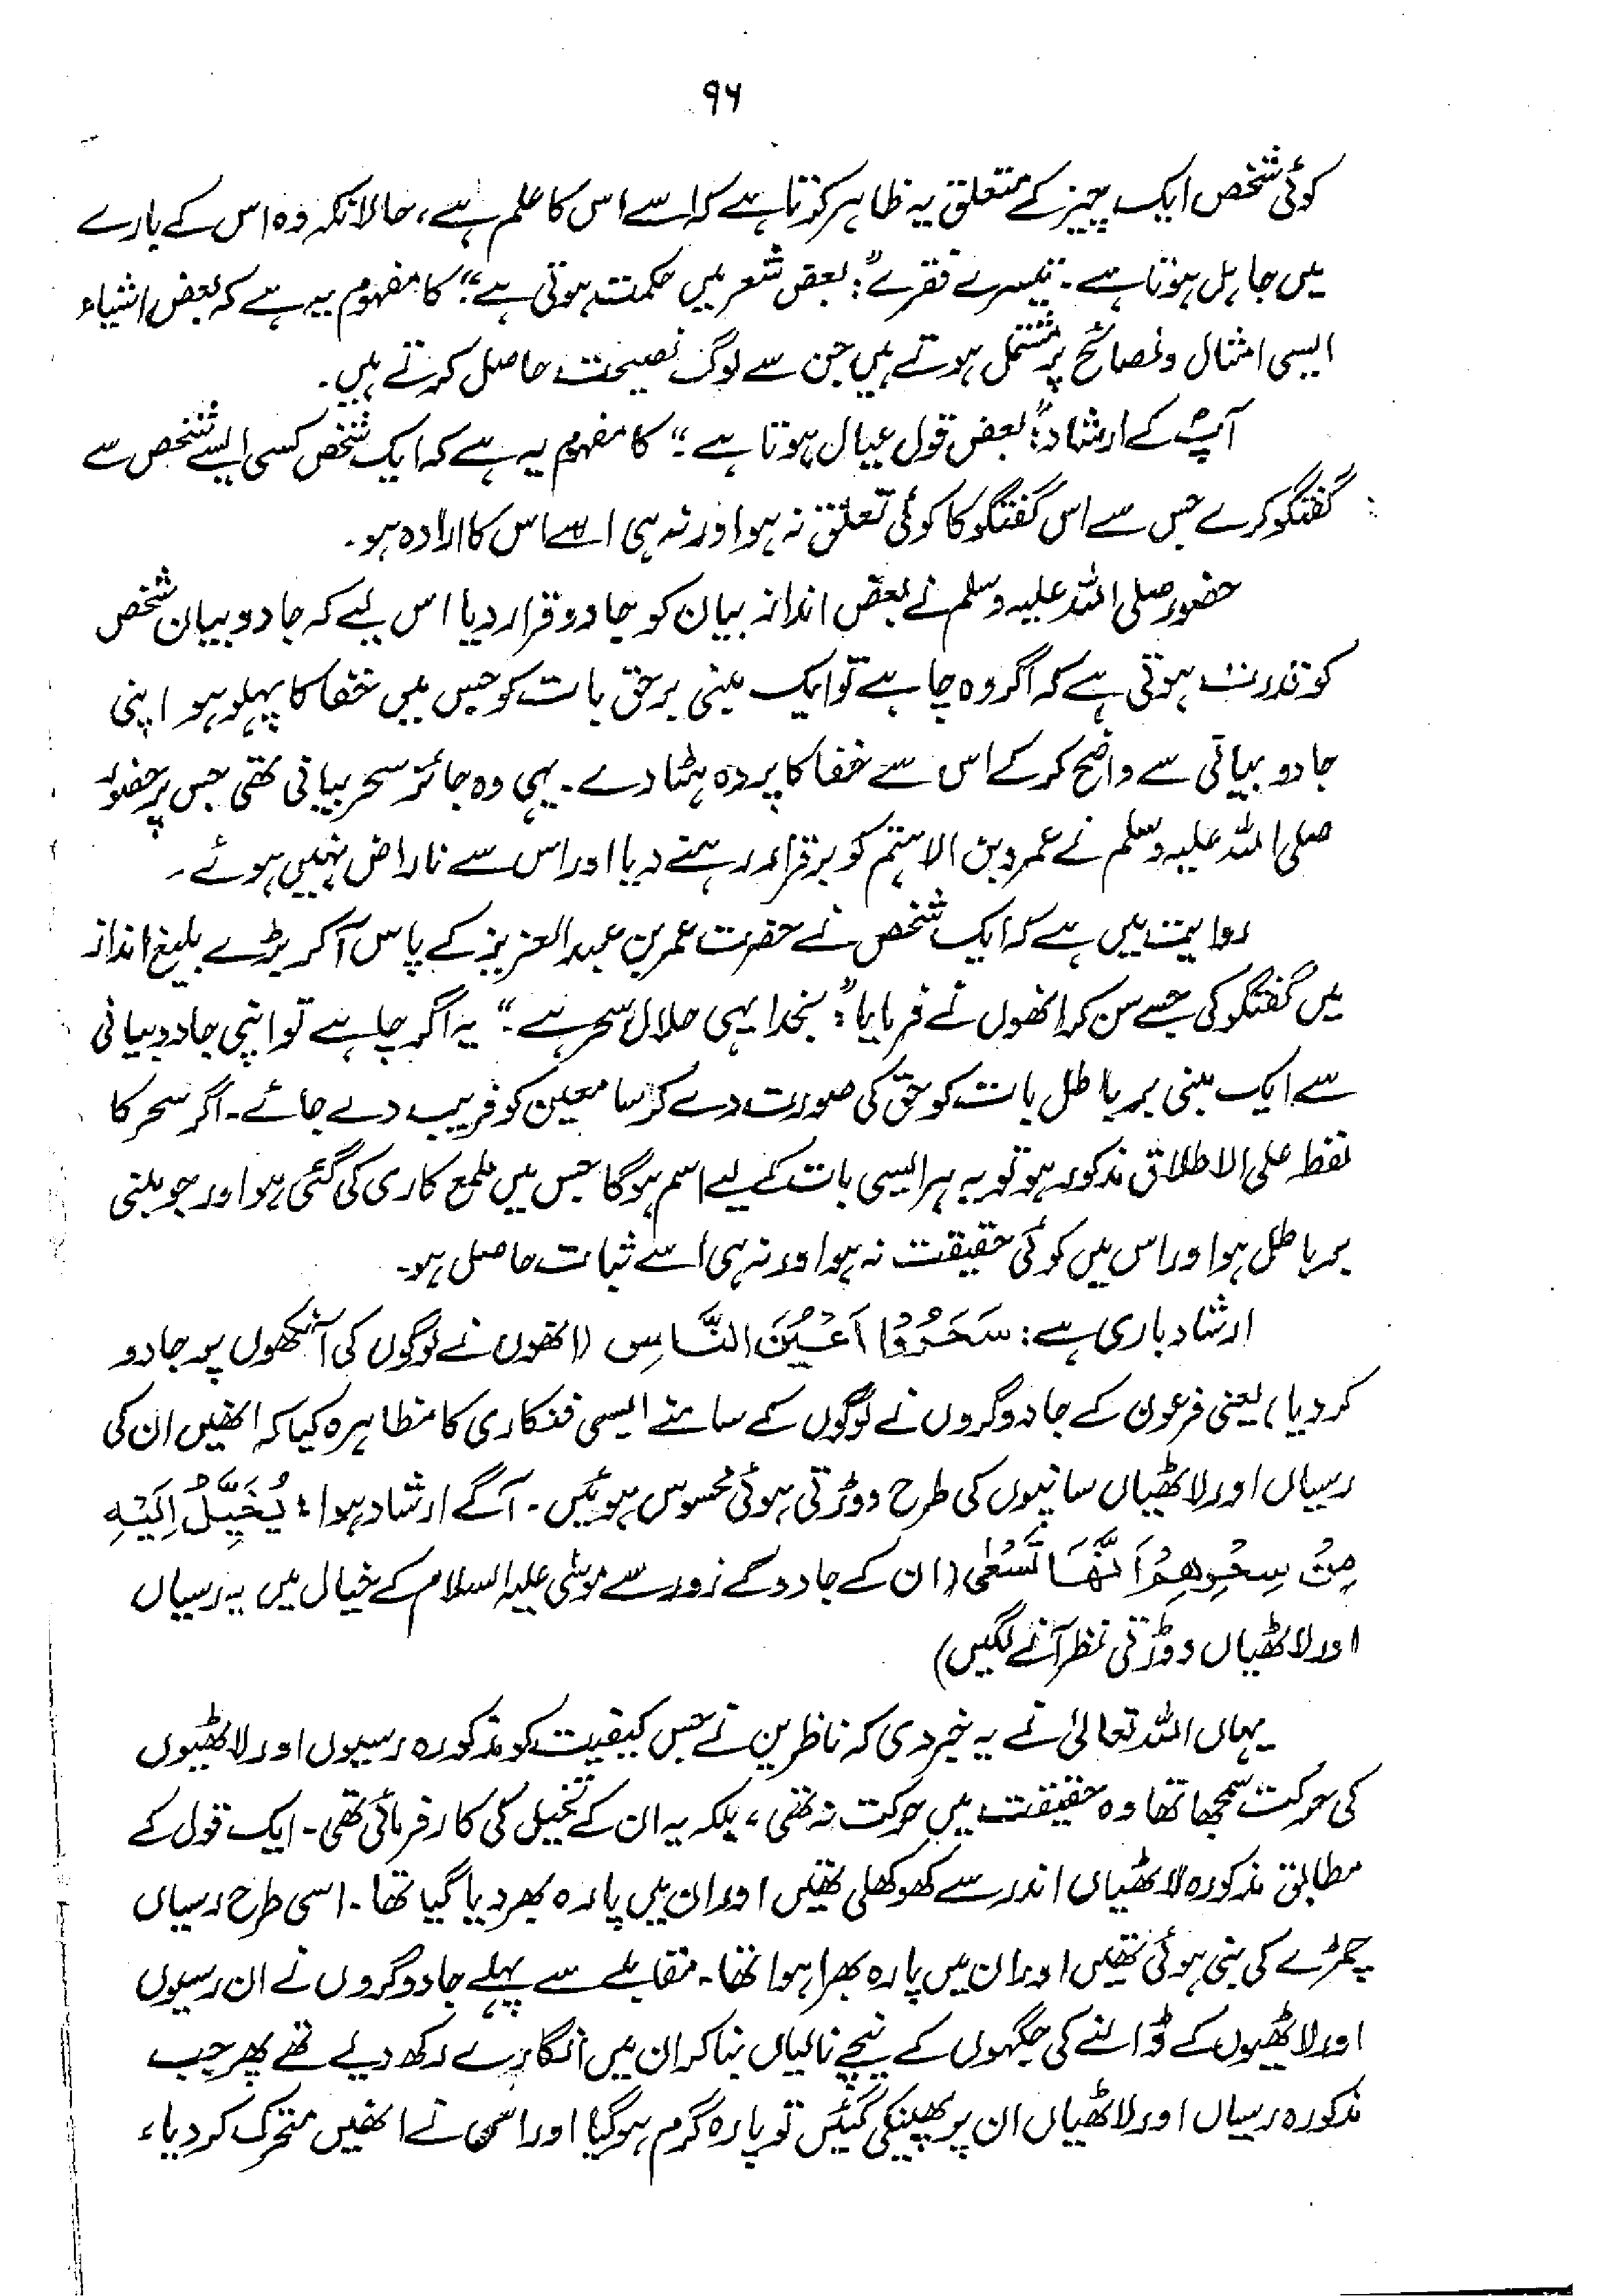 ۹۶
کوئی شخص ایک چیز کے متعلق یہ ظاہر کرتا ہے کہ اسے اس کا علم ہے، حالانکہ وہ اس کے بارے
میں جاہل ہوتا ہے۔ تیسرے فقرے "بعض شعر میں حکمت ہوتی ہے" کا مفہوم یہ ہے کہ بعض اشیاء
ایسی امثال و نصائح پر مشتمل ہوتے ہیں جن سے لوگ نصیحت حاصل کرتے ہیں۔
آپؐ کے ارشاد "بعض قول عیال ہوتا ہے" کا مفہوم یہ ہے کہ ایک شخص کسی ایسے شخص سے
گفتگو کرے جس سے اس گفتگو کا کوئی تعلق نہ ہو اور نہ ہی اسے اس کا ارادہ ہو۔
حضور صلی اللہ علیہ وسلم نے بعض انداز بیان کو جادو قرار دیا اس لیے کہ جادو بیان شخص
کو قدرت ہوتی ہے کہ اگر وہ چاہے تو ایک مبنی برحق بات کو جس میں خفا کا پہلو ہو اپنی
جادو بیانی سے واضح کر کے اس سے خفا کا پردہ ہٹا دے۔ یہی وہ جائز سحر بیانی تھی جس پر حضور
صلی اللہ علیہ وسلم نے عمرو بن الاہتم کو برقرار رہنے دیا اور اس سے ناراض نہیں ہوئے۔
روایت میں ہے کہ ایک شخص نے حضرت عمر بن عبد العزیز کے پاس آ کر بڑے بلیغ انداز
میں گفتگو کی جسے سن کر انھوں نے فرمایا: "بخدا یہی حلال سحر ہے۔" یہ اگر چاہے تو اپنی جادو بیانی
سے ایک مبنی بر باطل بات کو حق کی صورت دے کر سامعین کو فریب دے جائے۔ اگر سحر کا
لفظ علی الاطلاق مذکور ہو تو یہ ہر ایسی بات کے لیے اسم ہوگا جس میں ملمع کاری کی گئی ہو اور جو مبنی
بر باطل ہو اور اس میں کوئی حقیقت نہ ہو اور نہ ہی اسے ثبات حاصل ہو۔
ارشاد باری ہے: سَحَرُوْا اَعْیُنَ النَّاسِ (انھوں نے لوگوں کی آنکھوں پر جادو
کر دیا) یعنی فرعون کے جادوگروں نے لوگوں کے سامنے ایسی فنکاری کا مظاہرہ کیا کہ انھیں ان کی
رسیاں اور لاٹھیاں سانپوں کی طرح دوڑتی ہوئی محسوس ہوئیں۔ آگے ارشاد ہوا: یُخَیَّلُ اِلَیْہِ
مِنْ سِحْرِھِمْ اَنَّھَا تَسْعٰی (ان کے جادو کے زور سے موسٰی علیہ السلام کے خیال میں یہ رسیاں
اور لاٹھیاں دوڑتی نظر آنے لگیں)
یہاں اللہ تعالیٰ نے یہ خبر دی کہ ناظرین نے جس کیفیت کو مذکورہ رسیوں اور لاٹھیوں
کی حرکت سمجھا تھا وہ حقیقت میں حرکت نہ تھی، بلکہ یہ ان کے تخیل کی کارفرمائی تھی۔ ایک قول کے
مطابق مذکورہ لاٹھیاں اندر سے کھوکھلی تھیں اور ان میں پارہ بھر دیا گیا تھا۔ اسی طرح رسیاں
چمڑے کی بنی ہوئی تھیں اور ان میں پارہ بھرا ہوا تھا۔ مقابلے سے پہلے جادوگروں نے ان رسیوں
اور لاٹھیوں کے ڈالنے کی جگہوں کے نیچے نالیاں بنا کر ان میں انگارے رکھ دیے تھے پھر جب
مذکورہ رسیاں اور لاٹھیاں ان پر پھینکی گئیں تو پارہ گرم ہو گیا اور اسی نے انھیں متحرک کر دیا،